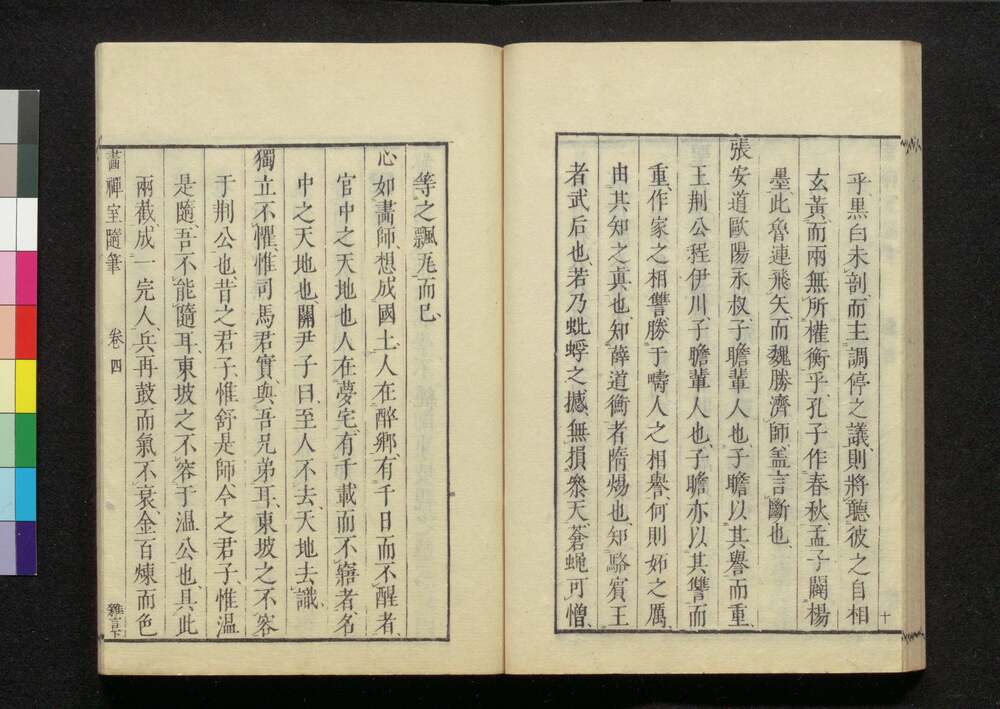 十
乎、黒白未剖、而主調停之議、則將聽彼之自相
玄黃、而兩無所權衡乎、孔子作春秋、孟子闢楊
墨、此魯連飛矢、而魏勝濟師、盖言斷也、
張安道歐陽永叔、子瞻輩人也、子瞻以其譽而重、
王荆公程伊川、子瞻輩人也、子瞻亦以其讐而
重、作家之相讐、勝于疇人之相譽、何則妬之厲、
由其知之眞也、知薛道衡者隋煬也、知駱賓王
者武后也、若乃蚍蜉之撼、無損衆天、蒼蝿可憎、
等之飄瓦而已、
心如畵師、想成國土、人在醉郷、有千日而不醒者、
官中之天地也、人在夢宅、有千載而不寤者、名
中之天地也、關尹子曰、至人不去天地去識、
獨立不懼、惟司馬君實、與吾兄弟耳、東坡之不容
于荆公也、昔之君子、惟舒是師、今之君子、惟温
是隨、吾不能隨耳、東坡之不容于温公也、具此
兩截、成一完人、兵再鼓而氣不衰、金百煉而色
畵禪室隨筆 卷四 雜言下